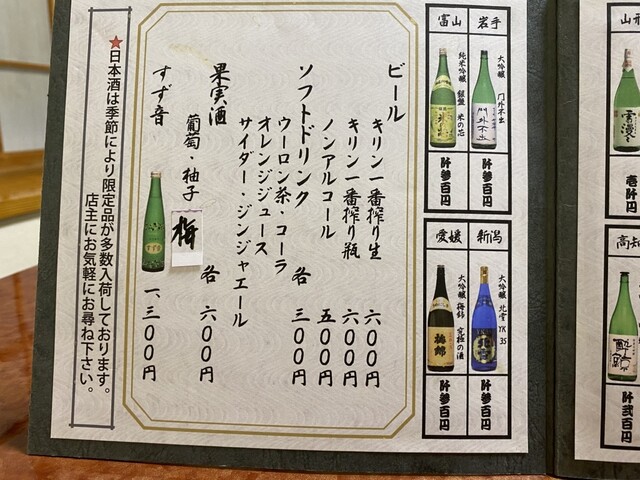 山形
雪漫々
壱阡円
高知
酔鯨
阡弐百円
岩手
大吟醸 門外不出
門外不出
阡参百円
富山
純米吟醸 銀盤 米の芯
米の芯
阡参百円
新潟
大吟醸 北雪 YK35
北雪
阡参百円
愛媛
大吟醸 梅錦 究極の酒
梅錦
阡参百円
ビール
キリン一番搾り生 六〇〇円
キリン一番搾り瓶 六〇〇円
ノンアルコール 五〇〇円
ソフトドリンク 各 三〇〇円
ウーロン茶・コーラ
オレンジジュース
サイダー・ジンジャエール
果実酒
葡萄・柚子 梅 各 六〇〇円
すず音 一、三〇〇円
すず音
★日本酒は季節により限定品が多数入荷しております。
店主にお気軽にお尋ね下さい。